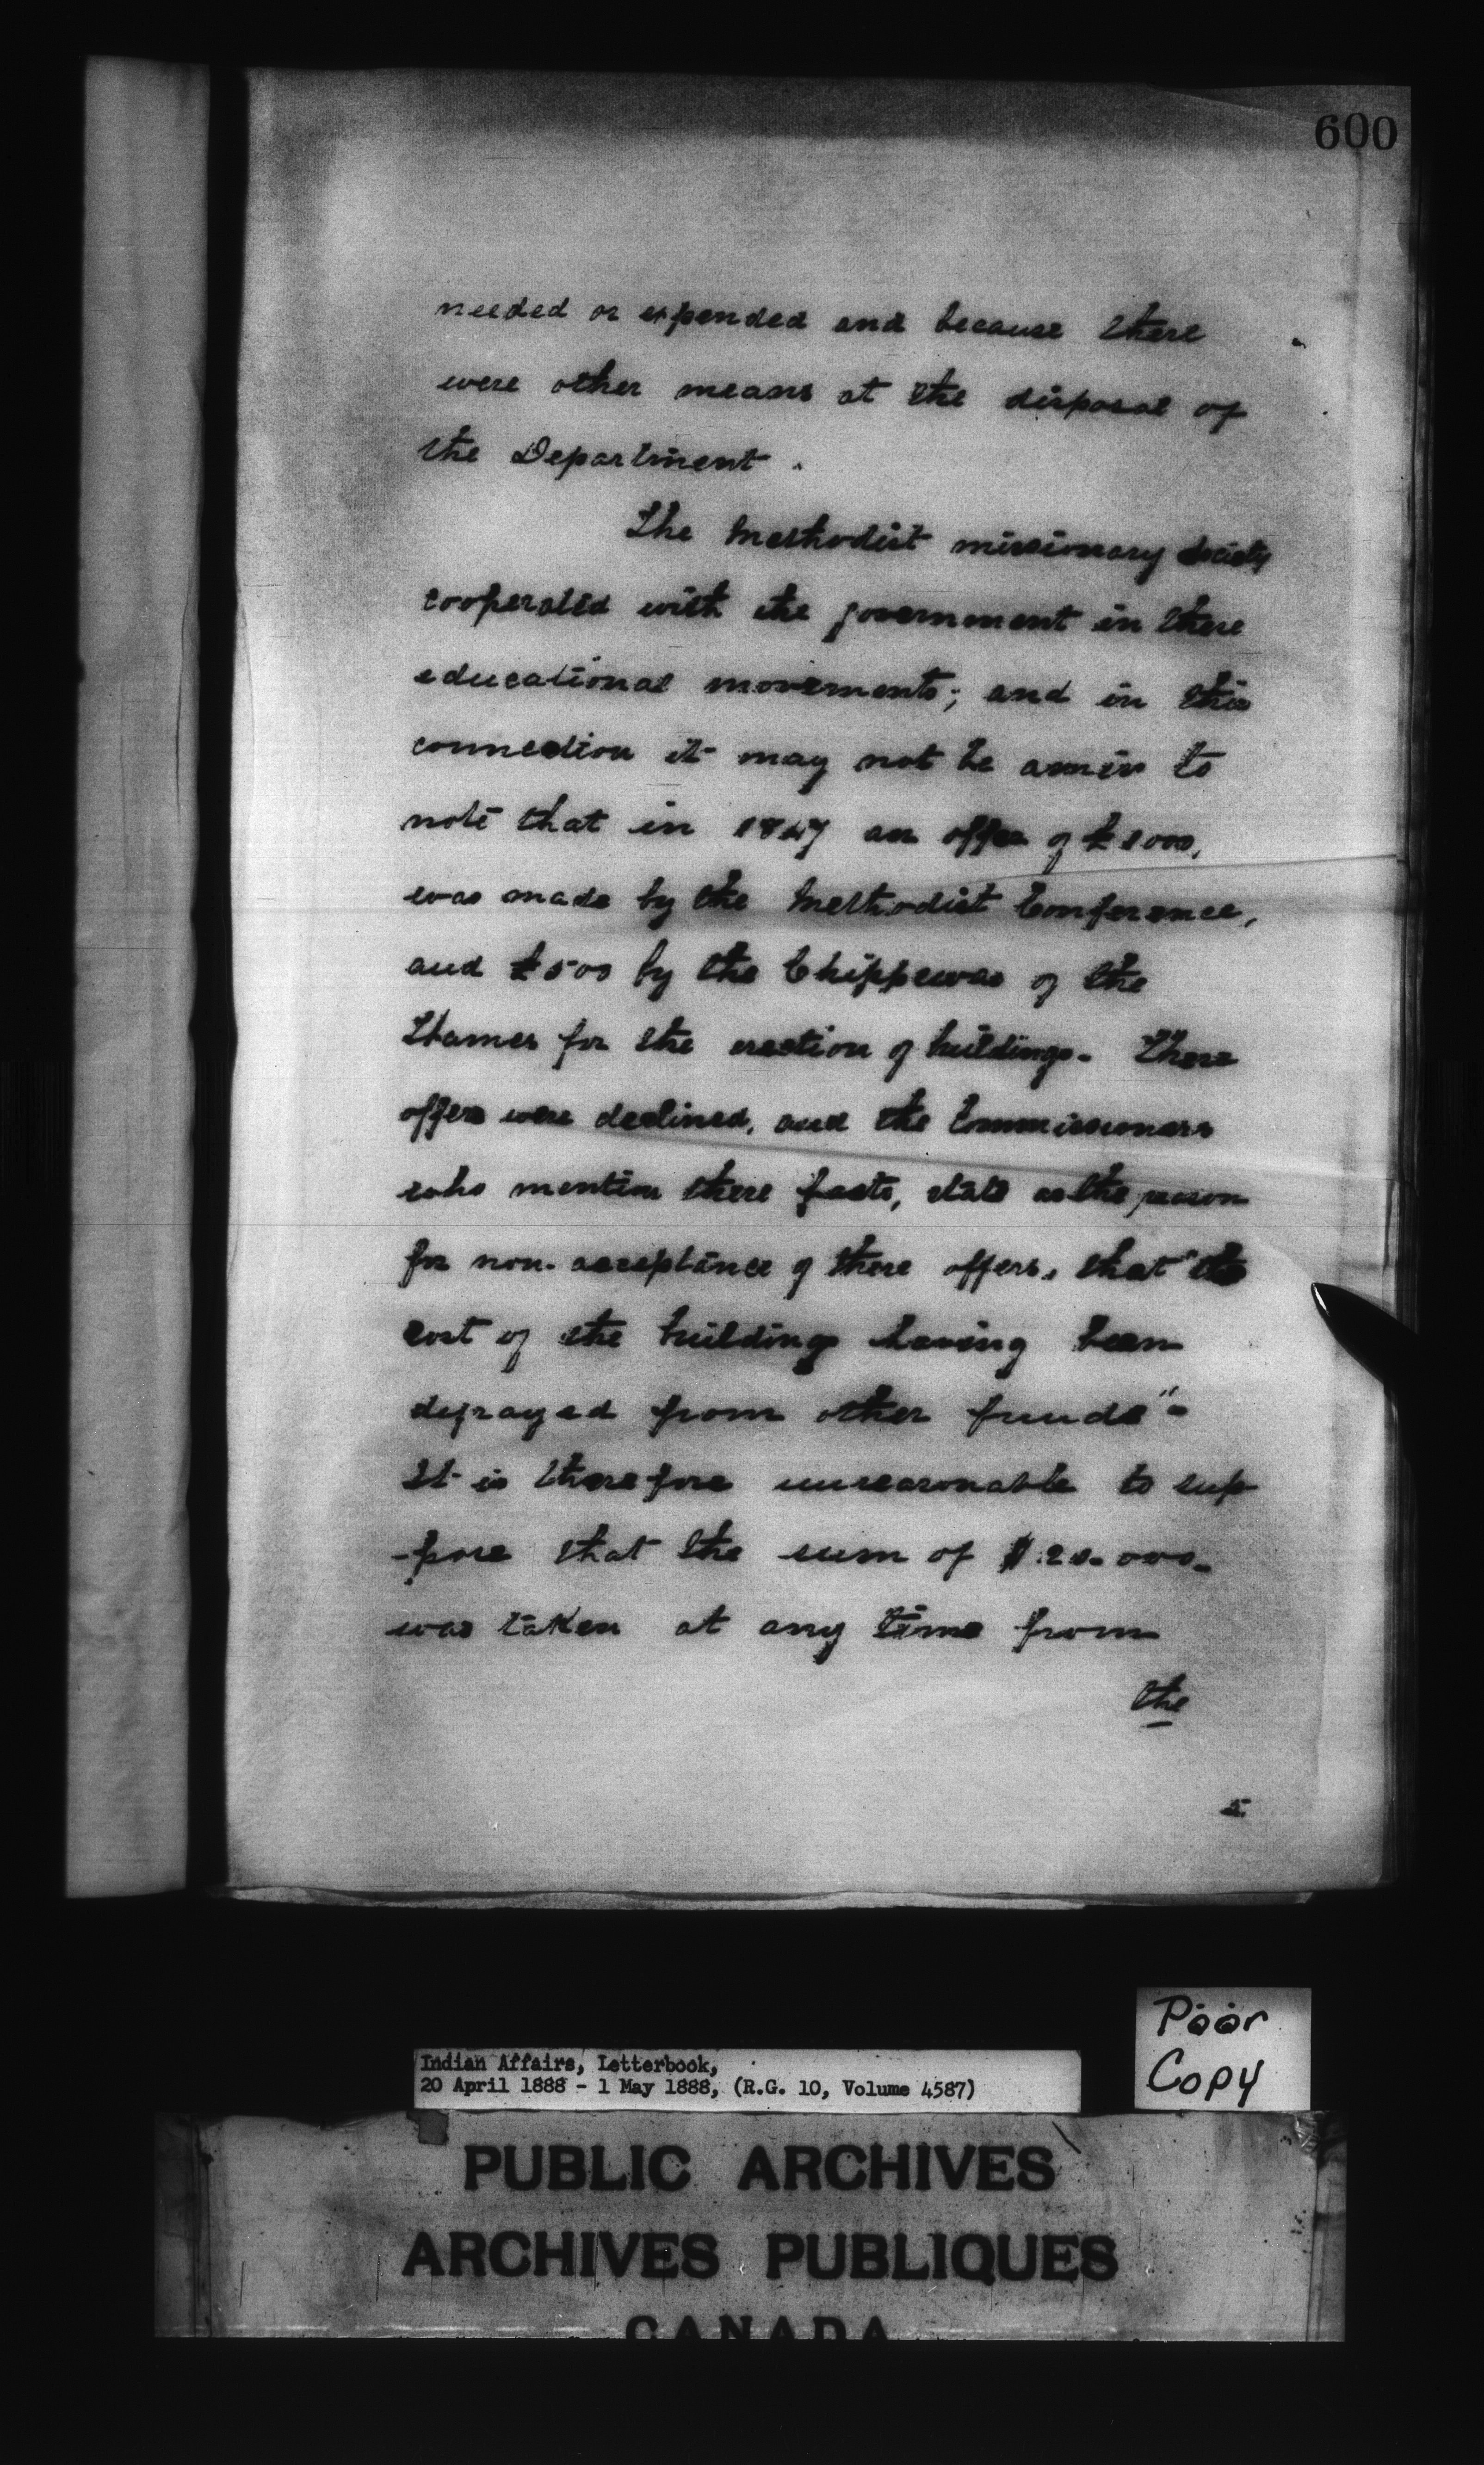 600
needed or expended and because there
were other means at the disposal of
the Department.
The Methodist missionary Society
cooperated with the government in these
educational movements; and in this
connection it may not be amiss to
note that in 1847 an offer of £1000,
was made by the Methodist Conference,
and £500 by the Chippewas of the
Thames for the erection of buildings. These
offers were declined, and the Commissioners
who mention these facts, state as the reason
for non-acceptance of these offers, that "the
cost of the buildings having been
defrayed from other funds"-
It is therefore unreasonable to sup
-pose that the sum of $20.000-
was taken at any time from
the
5.
Poor
Copy
Indian Affairs, Letterbook,
20 April 1888 - 1 May 1888, (R.G. 10, Volume 4587)
PUBLIC ARCHIVES
ARCHIVES PUBLIQUES
CANADA